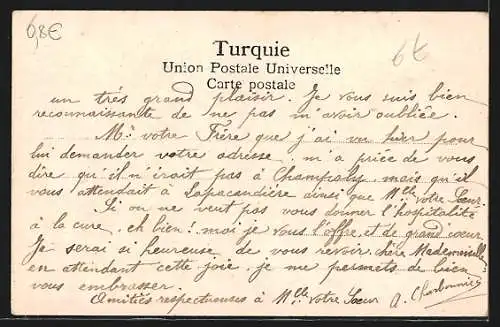 6,8€
6t
Turquie
Union Postale Universelle
Carte postale
un très grand plaisir. Je vous suis bien
reconnaissante de ne pas m'avoir oubliée.
Mr votre Frère que j'ai vu hier pour
lui demander votre adresse, m'a priée de vous
dire qu'il n'irait pas à Champoly, mais qu'il
vous attendait à Lapacaudière ainsi que Mlle votre Sœur.
Si on ne veut pas vous donner l'hospitalité
à la cure, eh bien! moi je vous l'offre et de grand cœur
Je serai si heureuse de vous revoir chère Mademoiselle
en attendant cette joie, je me permets de bien
vous embrasser.
Amitiés respectueuses à Mlle votre Sœur
A. Charbonnier